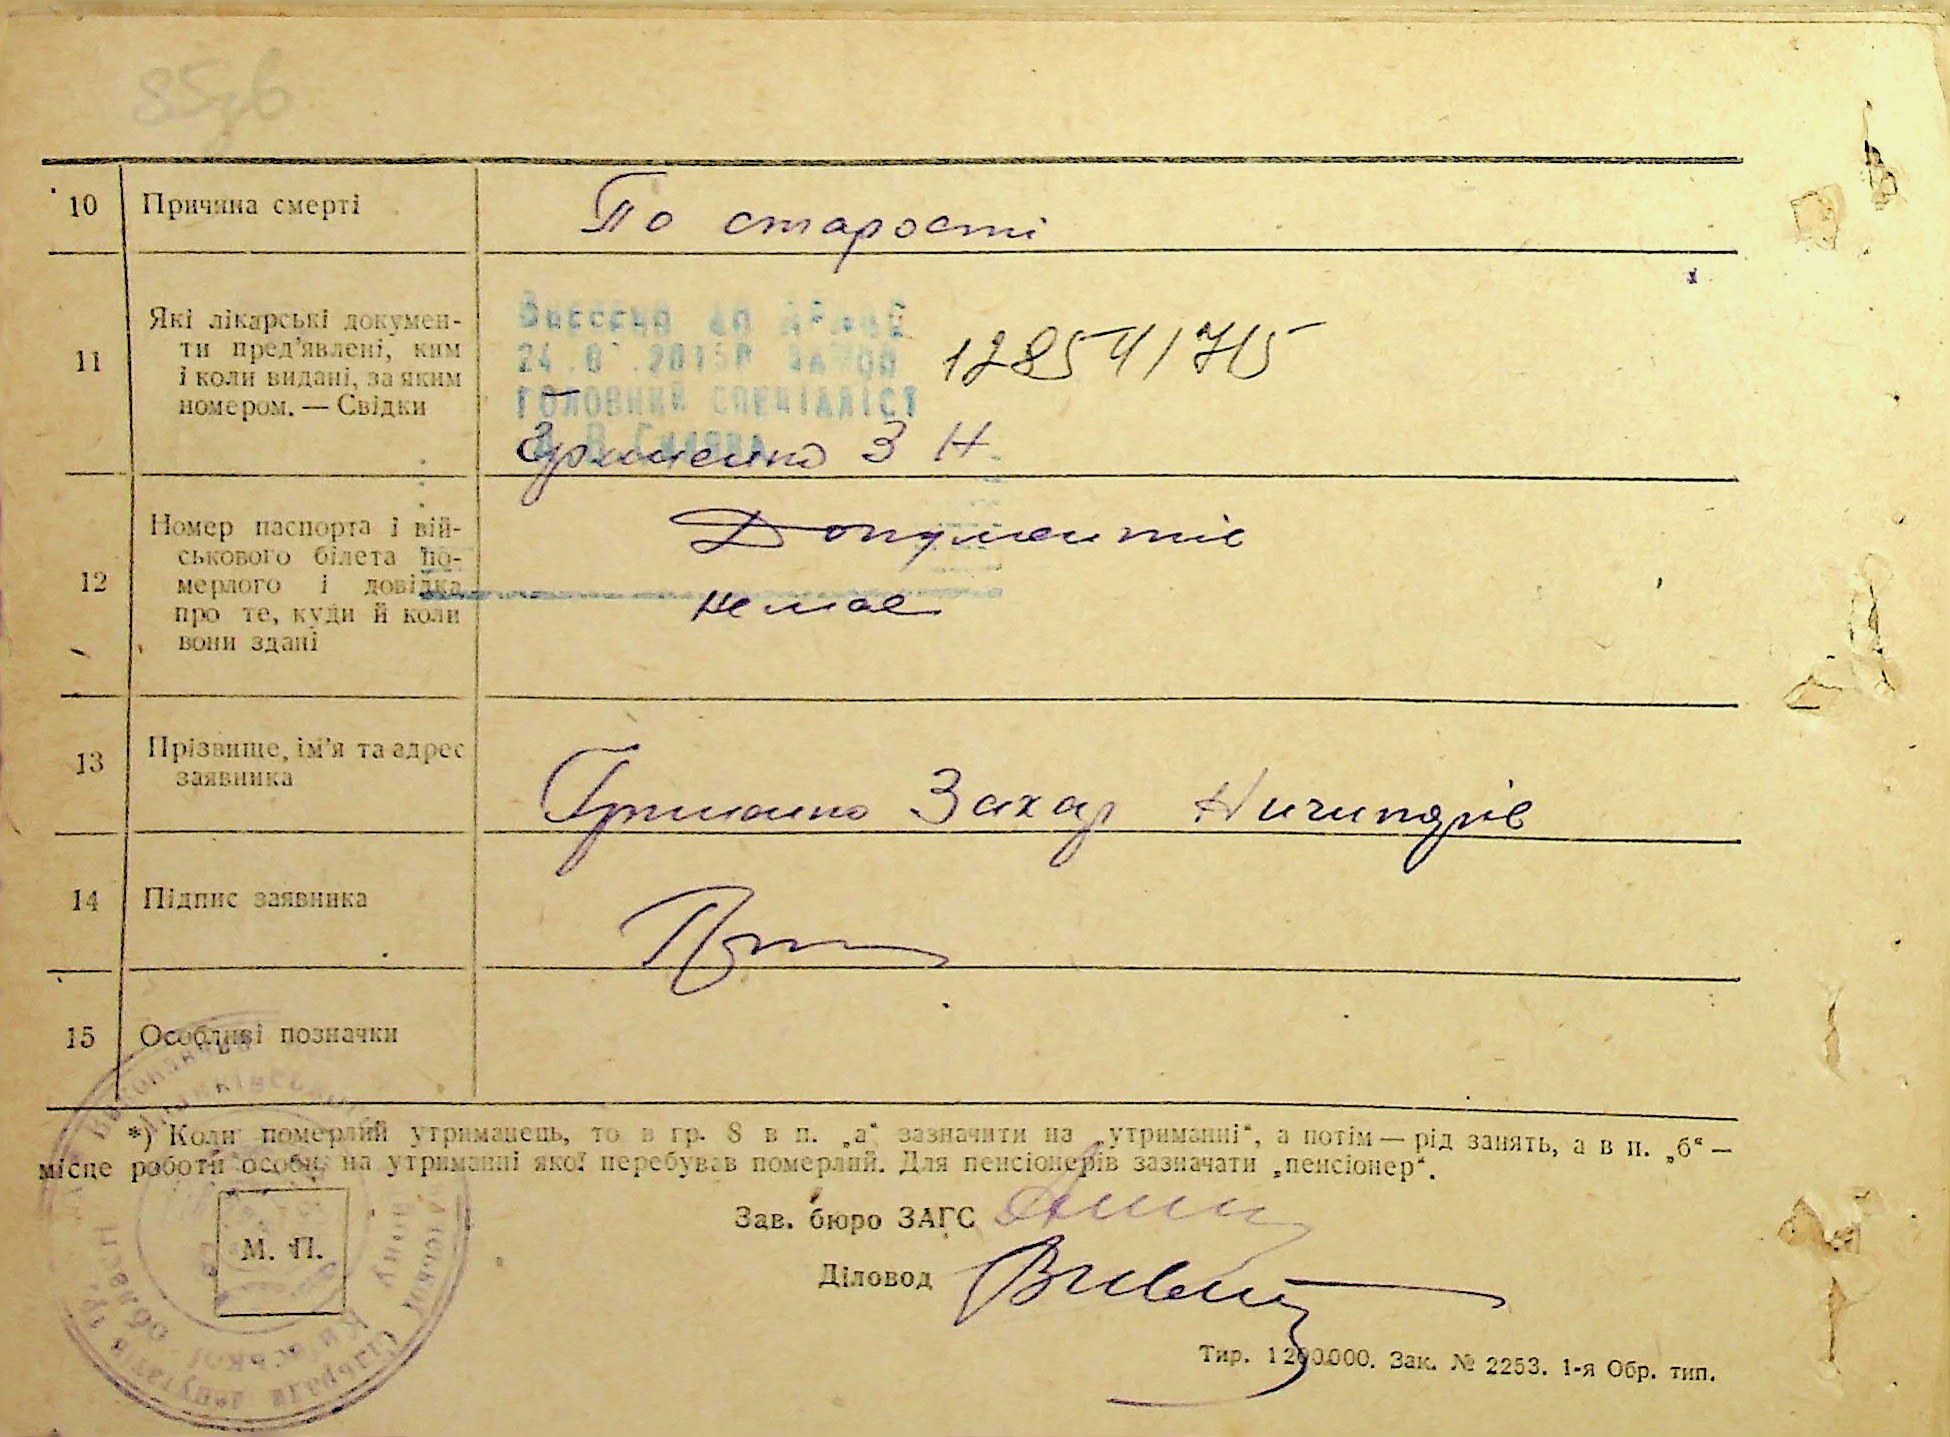 10 Причина смерті По старості
11 Які лікарські докумен-
ти пред'явлені, ким
і коли видані, за яким
номером. — Свідки
12854/715
ГОЛОВНИЙ СПЕЦІАЛІСТ
З Н
12 Номер паспорта і вій-
ськового білета по-
мерлого і довідка
про те, куди й коли
вони здані
Документів
немає
13 Прізвище, ім'я та адрес
заявника
Захар Ничипорів
14 Підпис заявника
15 Особливі позначки
*) Коли померлий утриманець, то в гр. 8 в п. „а“ зазначити на „утриманні“, а потім — рід занять, а в п. „б“ —
місце роботи особи, на утриманні якої перебував померлий. Для пенсіонерів зазначати „пенсіонер“.
Зав. бюро ЗАГС
М. П.
Діловод
Тир. 1200.000. Зак. № 2253. 1-я Обр. тип.